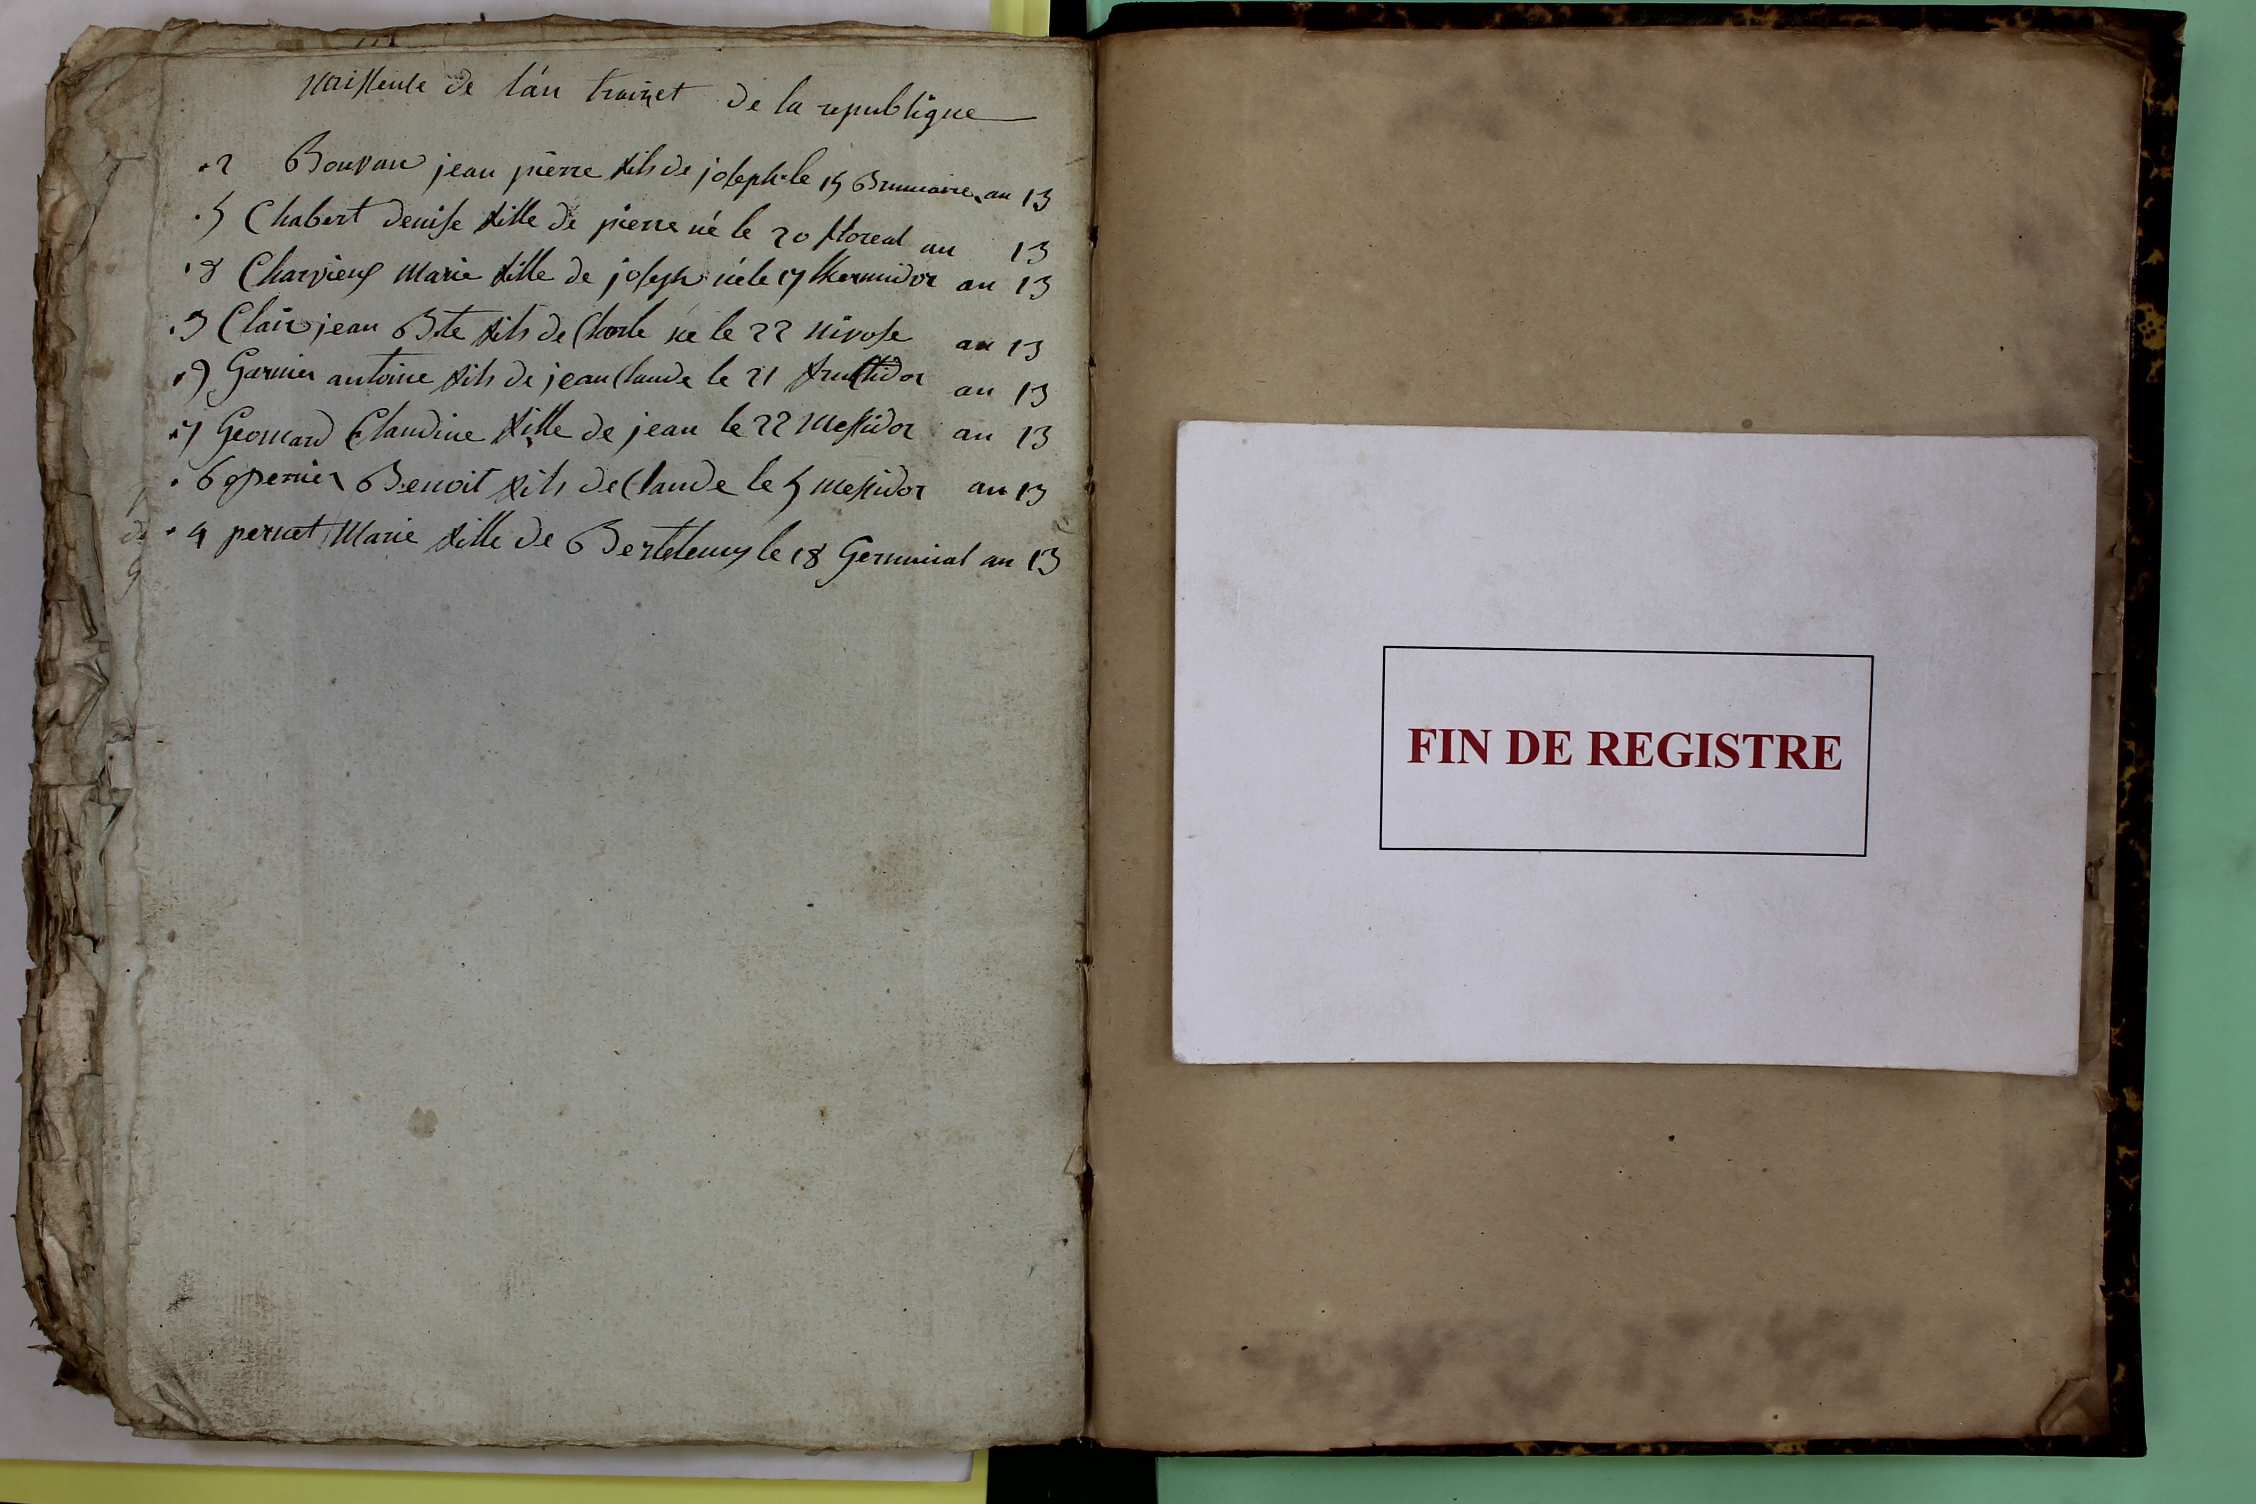 naissente de l'an traizet de la republique
.2 Bouvan jean pierre fils de joseph le 15 Brumaire an 13
.5 Chabert denise fille de pierre né le 20 floreal an 13
.8 Charvieux Marie fille de joseph né le 17 thermidor an 13
.3 Clair jean Bte fils de Charle né le 22 nivose an 13
.9 Garnier antoine fils de jean Claude le 21 fructidor an 13
.7 Geomard Claudine fille de jean le 22 messidor an 13
.6 pernier Benoit fils de Claude le 5 messidor an 13
.4 pernet Marie fille de Bertelemy le 18 Germinal an 13
FIN DE REGISTRE